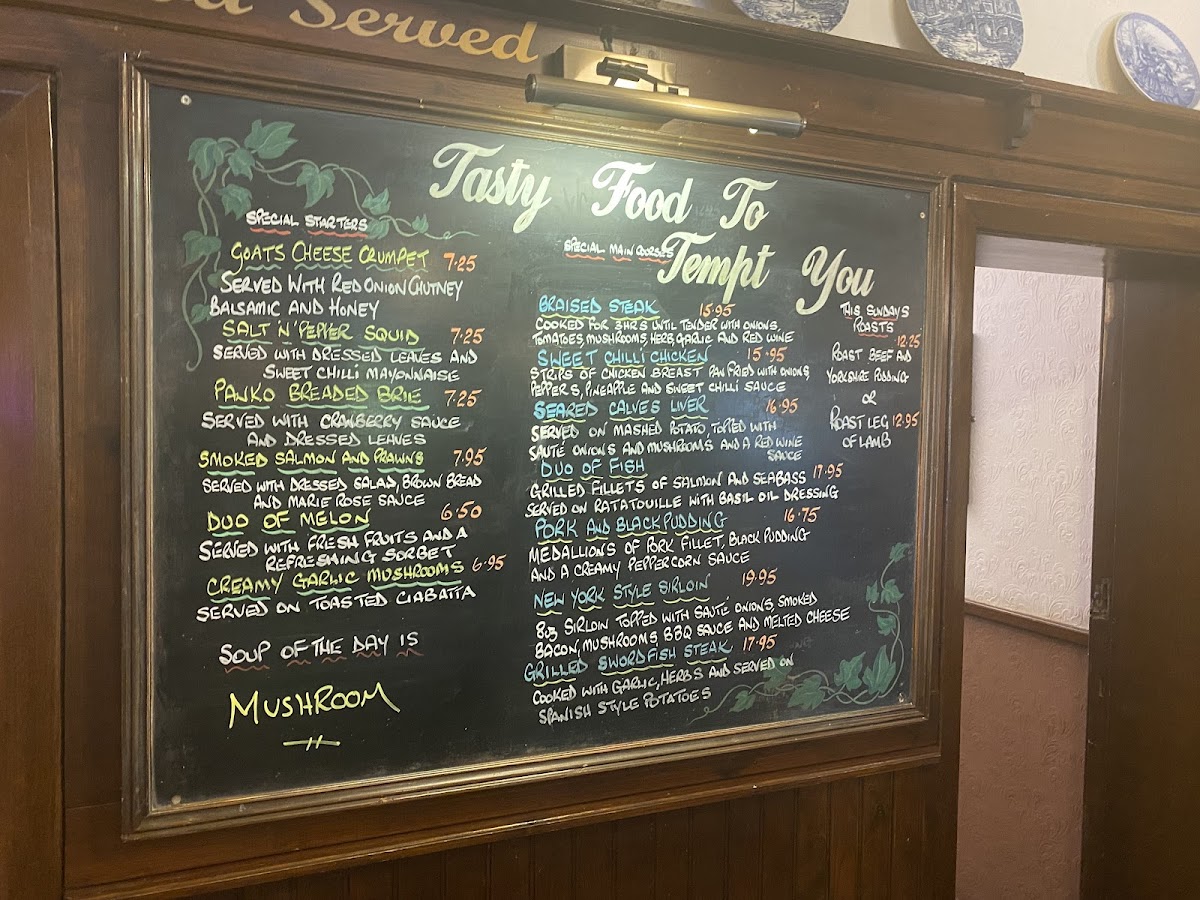 Served
Tasty Food To
Tempt You
SPECIAL STARTERS
GOATS CHEESE CRUMPET 7.25
SERVED WITH RED ONION CHUTNEY
BALSAMIC AND HONEY
SALT 'N' PEPPER SQUID 7.25
SERVED WITH DRESSED LEAVES AND
SWEET CHILLI MAYONNAISE
PANKO BREADED BRIE 7.25
SERVED WITH CRANBERRY SAUCE
AND DRESSED LEAVES
SMOKED SALMON AND PRAWNS 7.95
SERVED WITH DRESSED SALAD, BROWN BREAD
AND MARIE ROSE SAUCE
DUO OF MELON 6.50
SERVED WITH FRESH FRUITS AND A
REFRESHING SORBET
CREAMY GARLIC MUSHROOMS 6.95
SERVED ON TOASTED CIABATTA
SOUP OF THE DAY IS
MUSHROOM
SPECIAL MAIN COORSES
BRAISED STEAK 15.95
COOKED FOR 3HRS UNTIL TENDER WITH ONIONS,
TOMATOES, MUSHROOMS, HERB, GARLIC AND RED WINE
SWEET CHILLI CHICKEN 15.95
STRIPS OF CHICKEN BREAST PAN FRIED WITH ONIONS,
PEPPERS, PINEAPPLE AND SWEET CHILLI SAUCE
SEARED CALVES LIVER 16.95
SERVED ON MASHED POTATO, TOPPED WITH
SAUTÉ ONIONS AND MUSHROOMS AND A RED WINE
SAUCE
DUO OF FISH
GRILLED FILLETS OF SALMON AND SEABASS 17.95
SERVED ON RATATOUILLE WITH BASIL OIL DRESSING
PORK AND BLACK PUDDING 16.75
MEDALLIONS OF PORK FILLET, BLACK PUDDING
AND A CREAMY PEPPERCORN SAUCE
NEW YORK STYLE SIRLOIN 19.95
8oz SIRLOIN TOPPED WITH SAUTÉ ONIONS, SMOKED
BACON, MUSHROOMS, BBQ SAUCE AND MELTED CHEESE
GRILLED SWORDFISH STEAK 17.95
COOKED WITH GARLIC, HERBS AND SERVED ON
SPANISH STYLE POTATOES
THIS SUNDAYS
ROASTS
12.25
ROAST BEEF AND
YORKSHIRE PUDDING
OR
ROAST LEG 12.95
OF LAMB